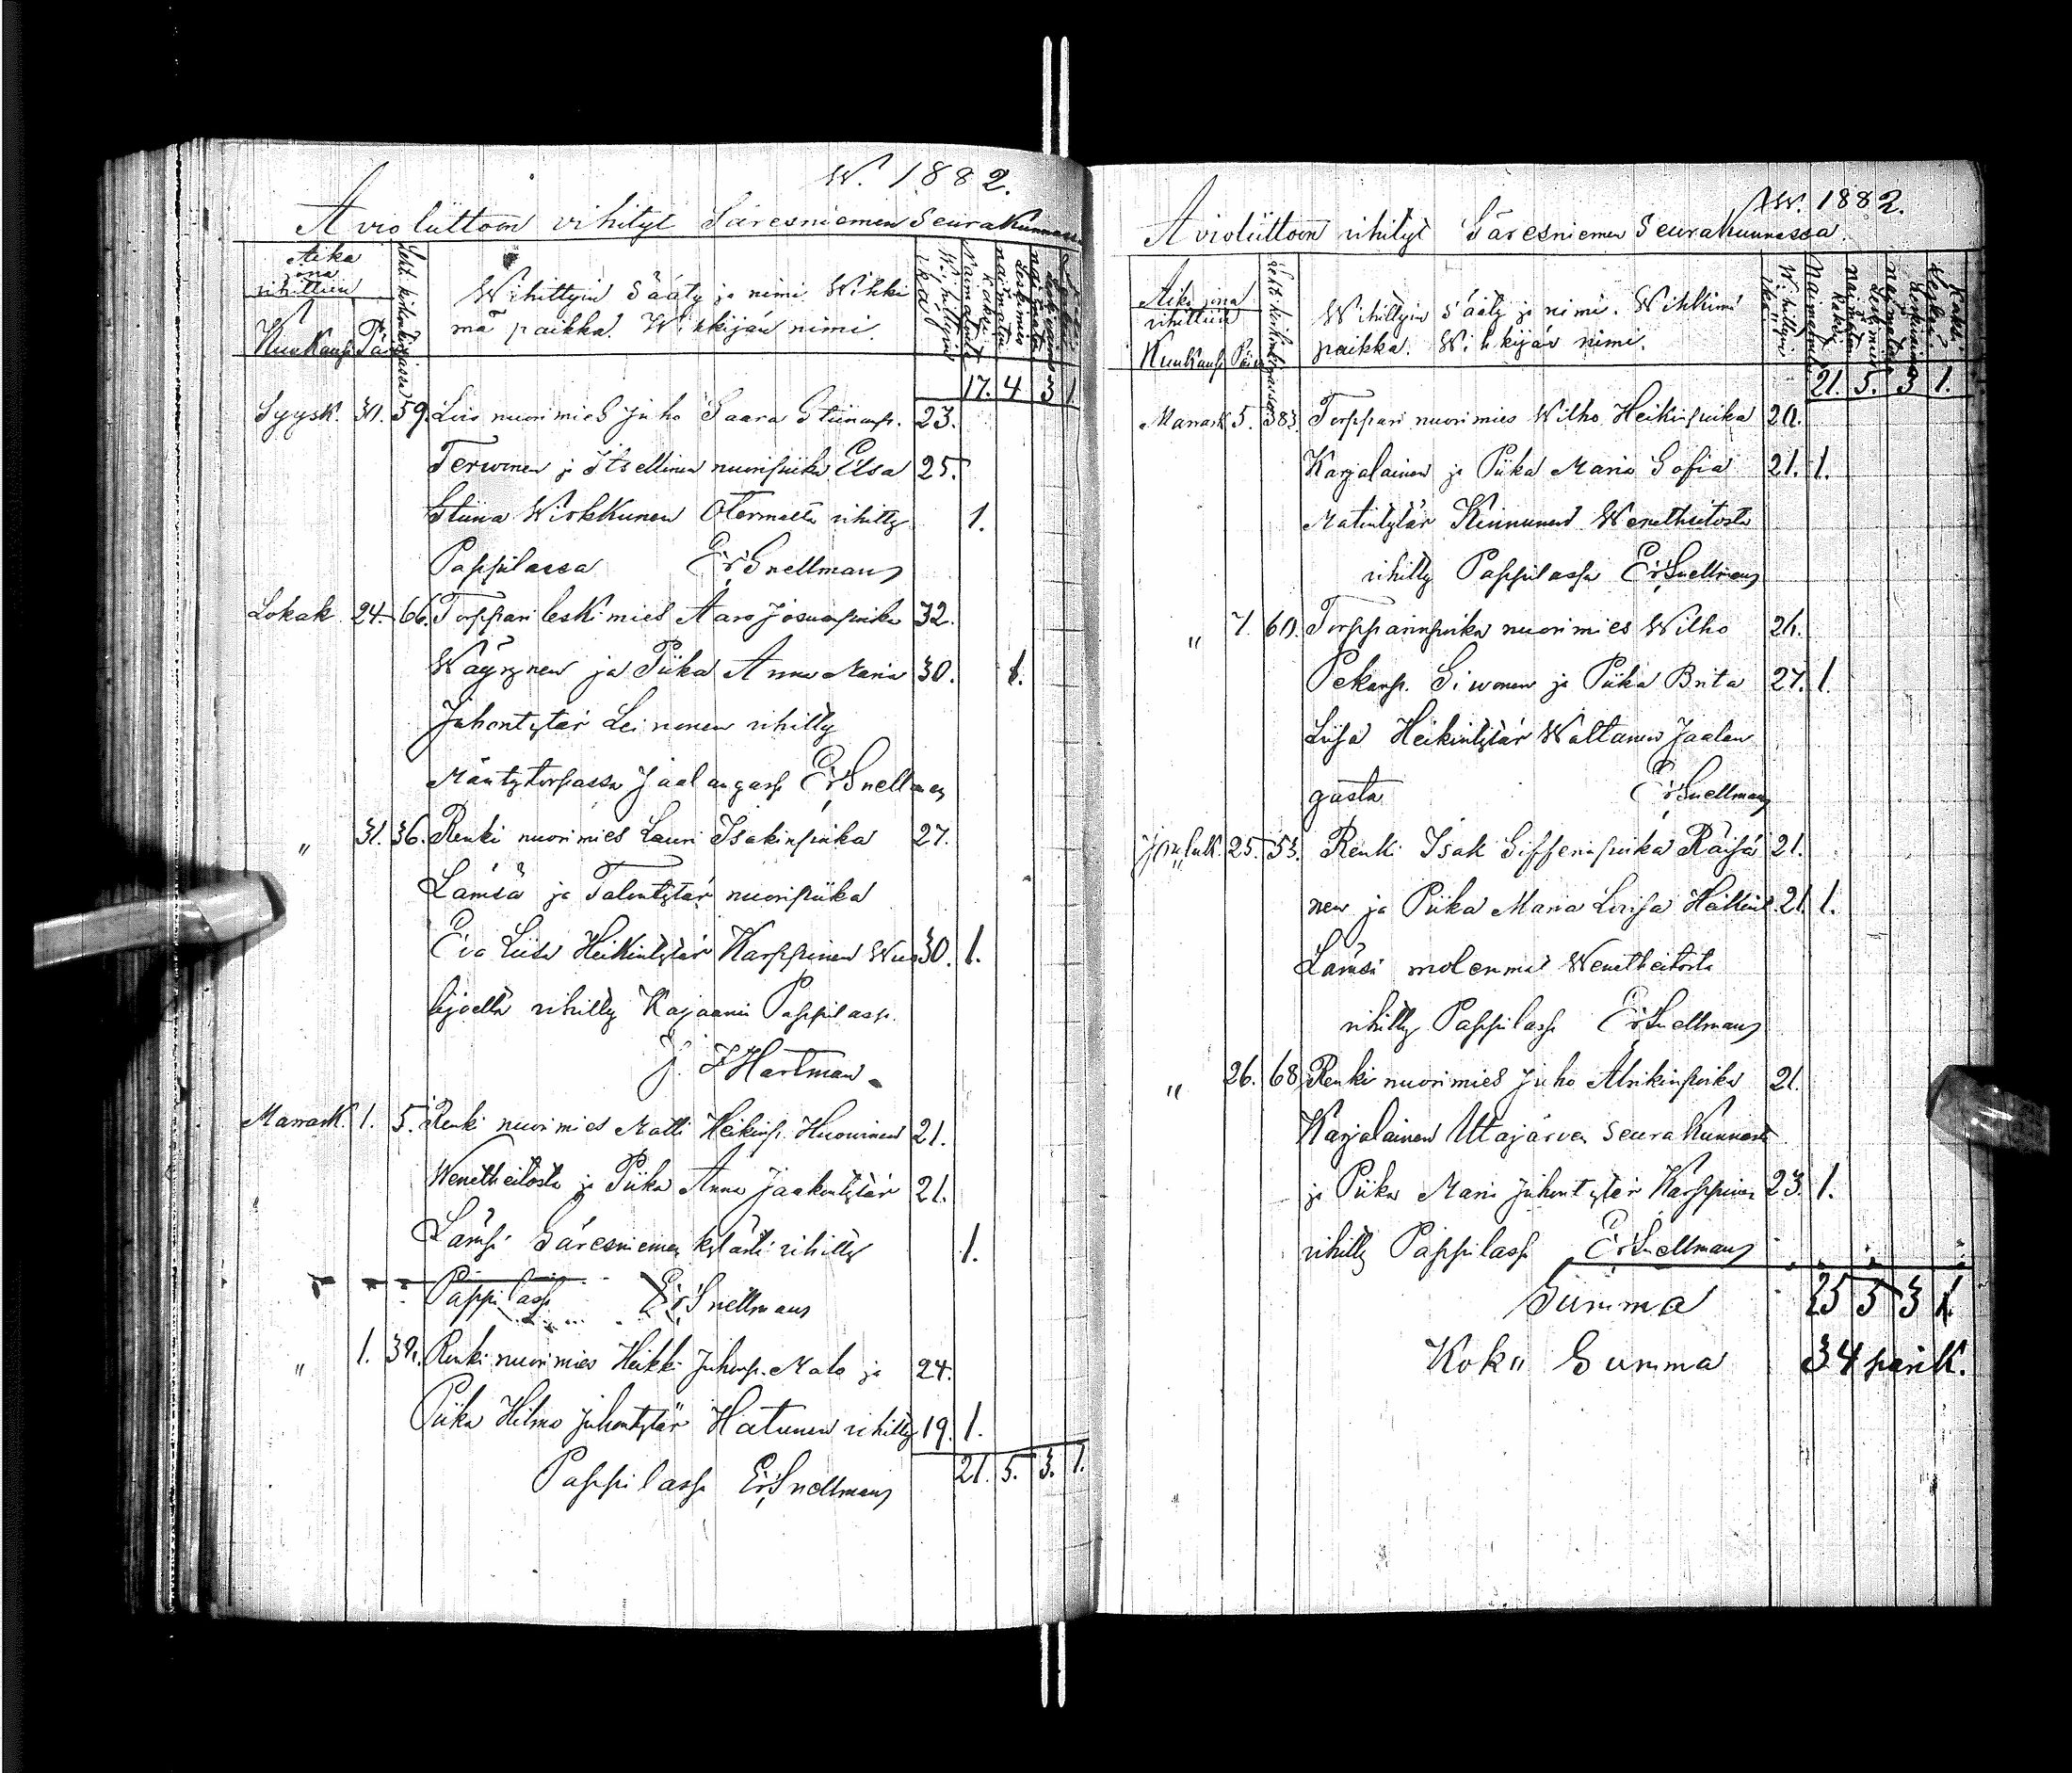 W. 1882.
Avioliittoon vihityt Säresniemen Seurakunnassa
Aika jona vihittiin
Kuukausi Päivä
Lehti kirkonkirjassa
Wihittyin Sääty ja nimi. Wihki
mä paikka. Wihkijän nimi.
Wihittyin ikä
17. 4 3 1
Syysk. 30. 59. Luis nuorimies Juho Saara Stiinanp. 23.
Terwonen ja Itsellinen nuoripiika Elsa 25.
Stiina Wirkkunen Otermalta vihitty 1.
Pappilassa Er Snellman
Lokak. 24. 66. Torppari leskimies Aaro Josuanpoika 32.
Wäyrynen ja Piika Anna Maria 30. 1.
Juhontytär Leinonen vihitty
Mäntytorpassa Jaalangass Er Snellman
" 31. 36. Renki nuorimies Lauri Isakinpoika 27.
Lämsä ja Talontytär nuoripiika
Eva Liisa Heikintytär Karppinen Wuo 30. 1.
lijoelta vihitty Kajaanin Pappilass.
J. F Hartman
Marrask. 1. 5. Renki nuorimies Matti Heikinp. Huovinen 21.
Wenetheitosta ja Piika Anna Jaakontytär 21.
Lämsä Säresniemen kylästä vihitty 1.
Pappilass Er Snellman
" 1. 39. Renki nuorimies Heikki Juhonp. Malo ja 24.
Piika Hilma Juhontytär Hatunen vihitty 19. 1.
Pappilass Er Snellman 21. 5. 3. 1.
W. 1882.
Avioliittoon vihityt Säresniemen Seurakunnassa.
Aika jona
vihittiin
Kuukausi Päivä
Lehti kirkonkirjassa
Wihittyin Sääty ja nimi. Wihkimä
paikka. Wihkijän nimi.
Wihittyin ikä
21. 5. 3 1.
Marrask. 5. 383. Torppari nuorimies Wilho Heikinpoika 20.
Karjalainen ja Piika Maria Sofia 21. 1.
Matintytär Kinnunen Wenetheitosta
vihitty Pappilassa Er Snellman
" 7. 60. Torpparinpoika nuorimies Wilho 26.
Pekanp. Siwonen ja Piika Brita 27. 1.
Liisa Heikintytär Waltanen Jaalan
gasta Er Snellman
Jouluk. 25. 53. Renki Isak Siffeninpoika Räisä 21.
nen ja Piika Maria Lovisa Heikint. 21. 1.
Lämsä molemmat Wenetheitosta
vihitty Pappilass Er Snellman
" 26. 68 Renki nuorimies Juho Alrikinpoika 21.
Karjalainen Utajärven Seurakunnasta
ja Piika Maria Juhontytär Karppinen 23. 1.
vihitty Pappilass Er Snellman
Summa 25 5 3 1.
Koko Summa 34 parik.